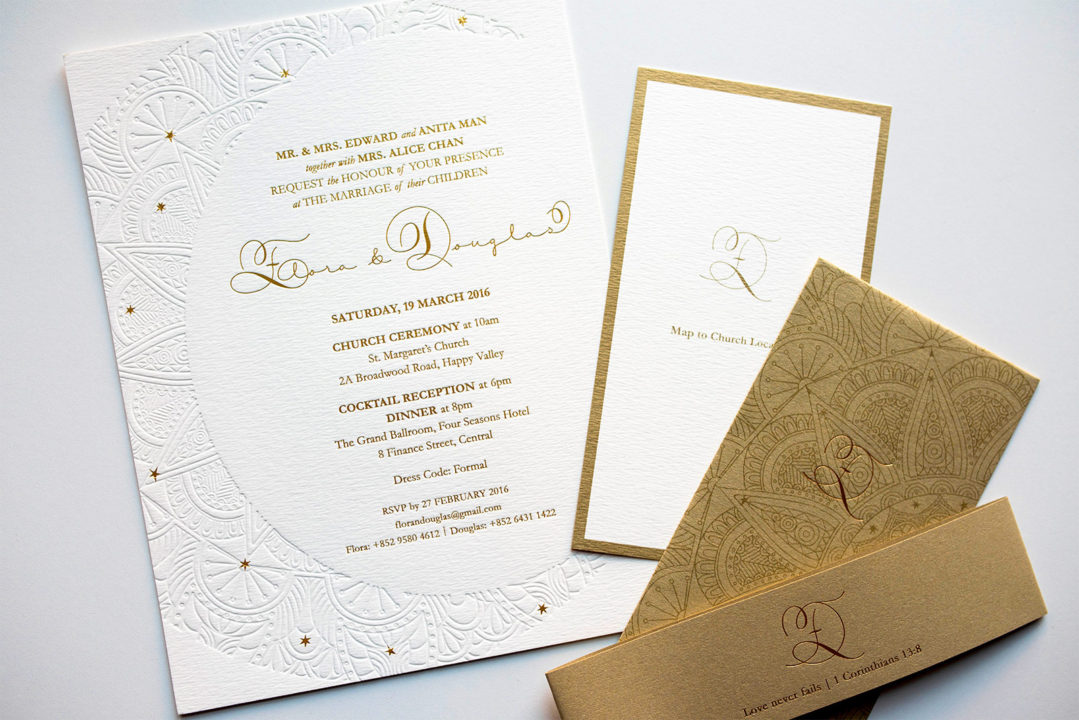 MR. & MRS. EDWARD and ANITA MAN
together with MRS. ALICE CHAN
REQUEST the HONOUR of YOUR PRESENCE
at THE MARRIAGE of their CHILDREN
Flora & Douglas
SATURDAY, 19 MARCH 2016
CHURCH CEREMONY at 10am
St. Margaret's Church
2A Broadwood Road, Happy Valley
COCKTAIL RECEPTION at 6pm
DINNER at 8pm
The Grand Ballroom, Four Seasons Hotel
8 Finance Street, Central
Dress Code: Formal
RSVP by 27 FEBRUARY 2016
florandouglas@gmail.com
Flora: +852 9580 4612 | Douglas: +852 6431 1422
FD
Map to Church Loca
FD
FD
Love never fails | 1 Corinthians 13:8